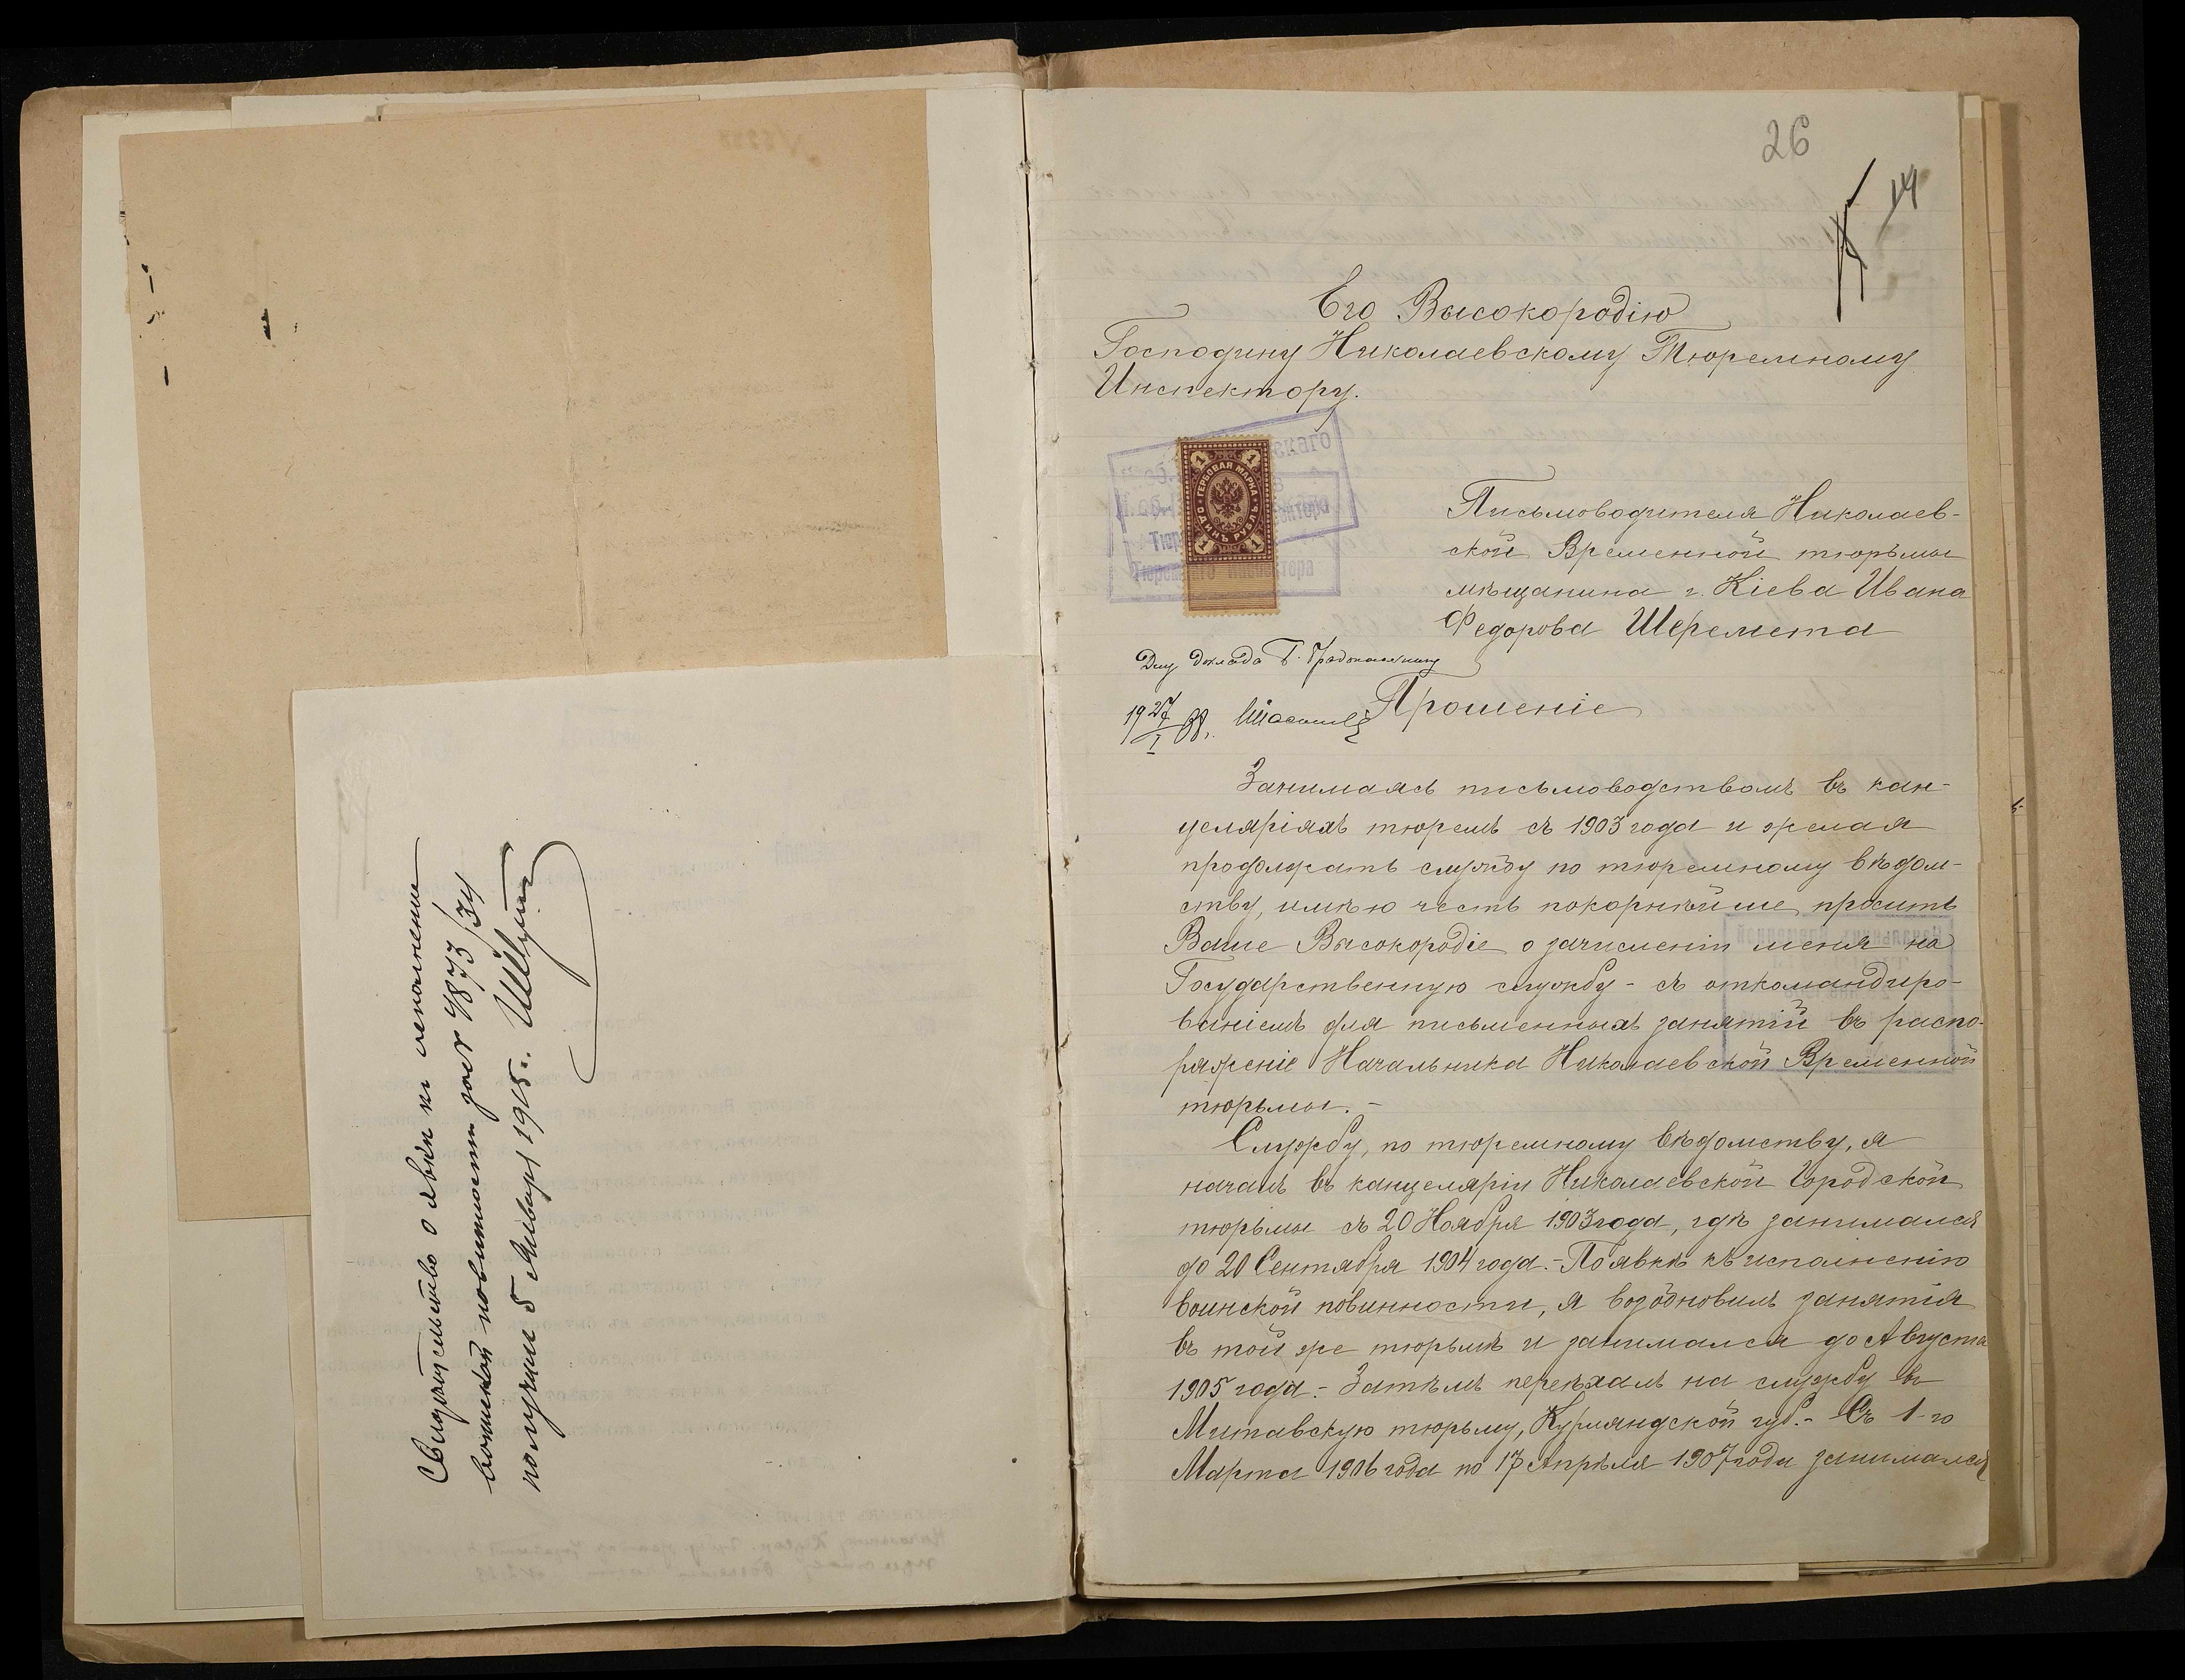 Свидѣтельство о явкѣ къ исполненiю
воинской повинности за № 1873/34
получилъ 5 Января 1905 г.
26
14
Его Высокородію
Господину Николаевскому Тюремному
Инспектору.
ГЕРБОВАЯ МАРКА
ОДИНЪ РУБЛЬ
1 1
1 1
Письмоводителя Николаев-
ской Временной тюрьмы
мѣщанина г. Кіева Ивана
Федорова Шеремета
Для доклада Г. Градоначальнику
19 27/I 08.
Прошеніе
Занимаясь письмоводствомъ въ кан-
целяріяхъ тюремъ съ 1903 года и желая
продолжать службу по тюремному вѣдом-
ству, имѣю честь покорнѣйше просить
Ваше Высокородіе о зачисленіи меня на
Государственную службу - съ откомандиро-
ваніемъ для письменныхъ занятій въ распо-
ряженіе Начальника Николаевской Временной
тюрьмы. -
Службу, по тюремному вѣдомству, я
началъ въ канцеляріи Николаевской Городской
тюрьмы съ 20 Ноября 1903 года, гдѣ занимался
до 20 Сентября 1904 года. - По явкѣ къ исполненію
воинской повинности, я возобновилъ занятія
въ той же тюрьмѣ и занимался до Августа
1905 года. - Затѣмъ переѣхалъ на службу въ
Митавскую тюрьму, Курляндской губ. - Съ 1-го
Марта 1906 года по 17 Апрѣля 1907 года занимался